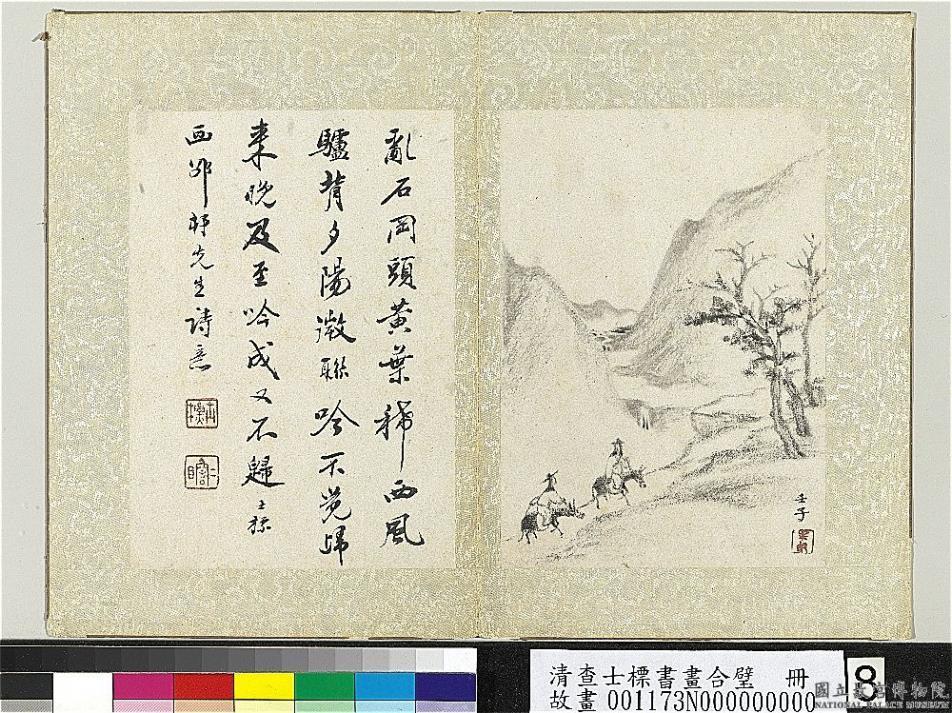 亂石岡頭黃葉稀西風
驢背夕陽微聯吟不覺歸
來晚及至吟成又不歸士標
西邨軒先生詩意
壬子
清查士標書畫合璧 冊
故畫001173N000000000
8
國立故宮博物院
NATIONAL PALACE MUSEUM